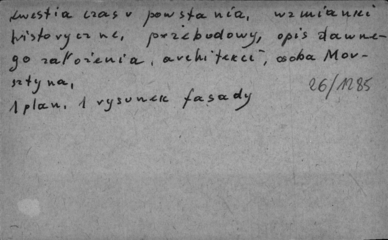 kwestia czasu powstania, wzmianki
historyczne, przebudowy, opis dawne-
go założenia, architekci, osoba Mor-
sztyna,
1 plan, 1 rysunek fasady
26/1285